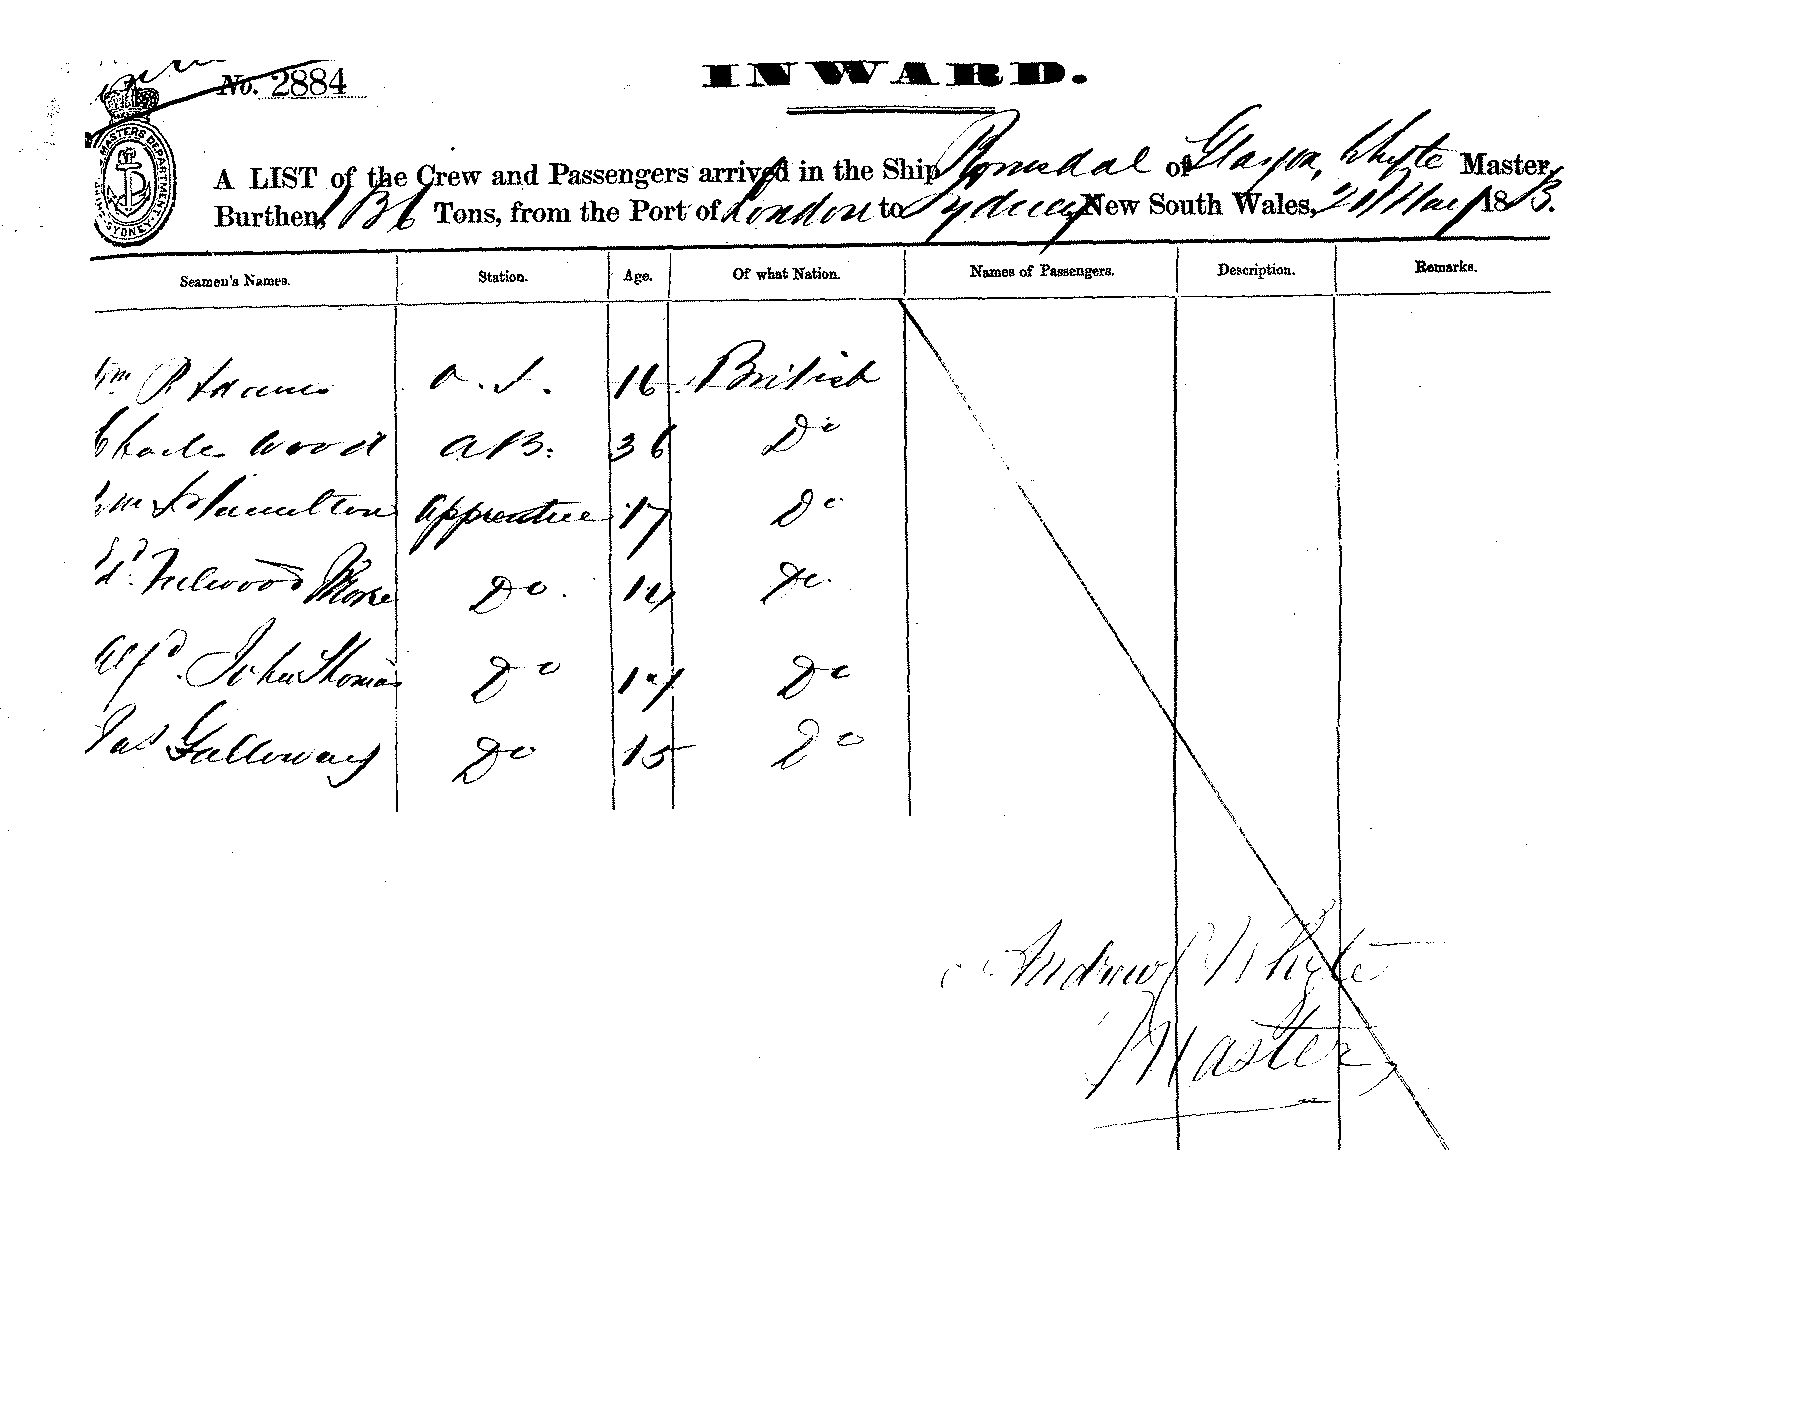 No. 2884
INWARD.
MASTERS DEPARTMENT SYDNEY
A LIST of the Crew and Passengers arrived in the Ship Romsdal of Glasgow, Whyte Master,
Burthen, Tons, from the Port of London to Sydney New South Wales, 18
Seamen's Names. Station. Age. Of what Nation. Names of Passengers. Description. Remarks.
Wm P. Adams O.S. 16 British
Charles Wood AB. 36 Do
Wm Hamilton Apprentice 17 Do
Do Do
Alfd. John Thomas Do 17 Do
Jas Galloway Do 15 Do
Andrew Whyte
Master